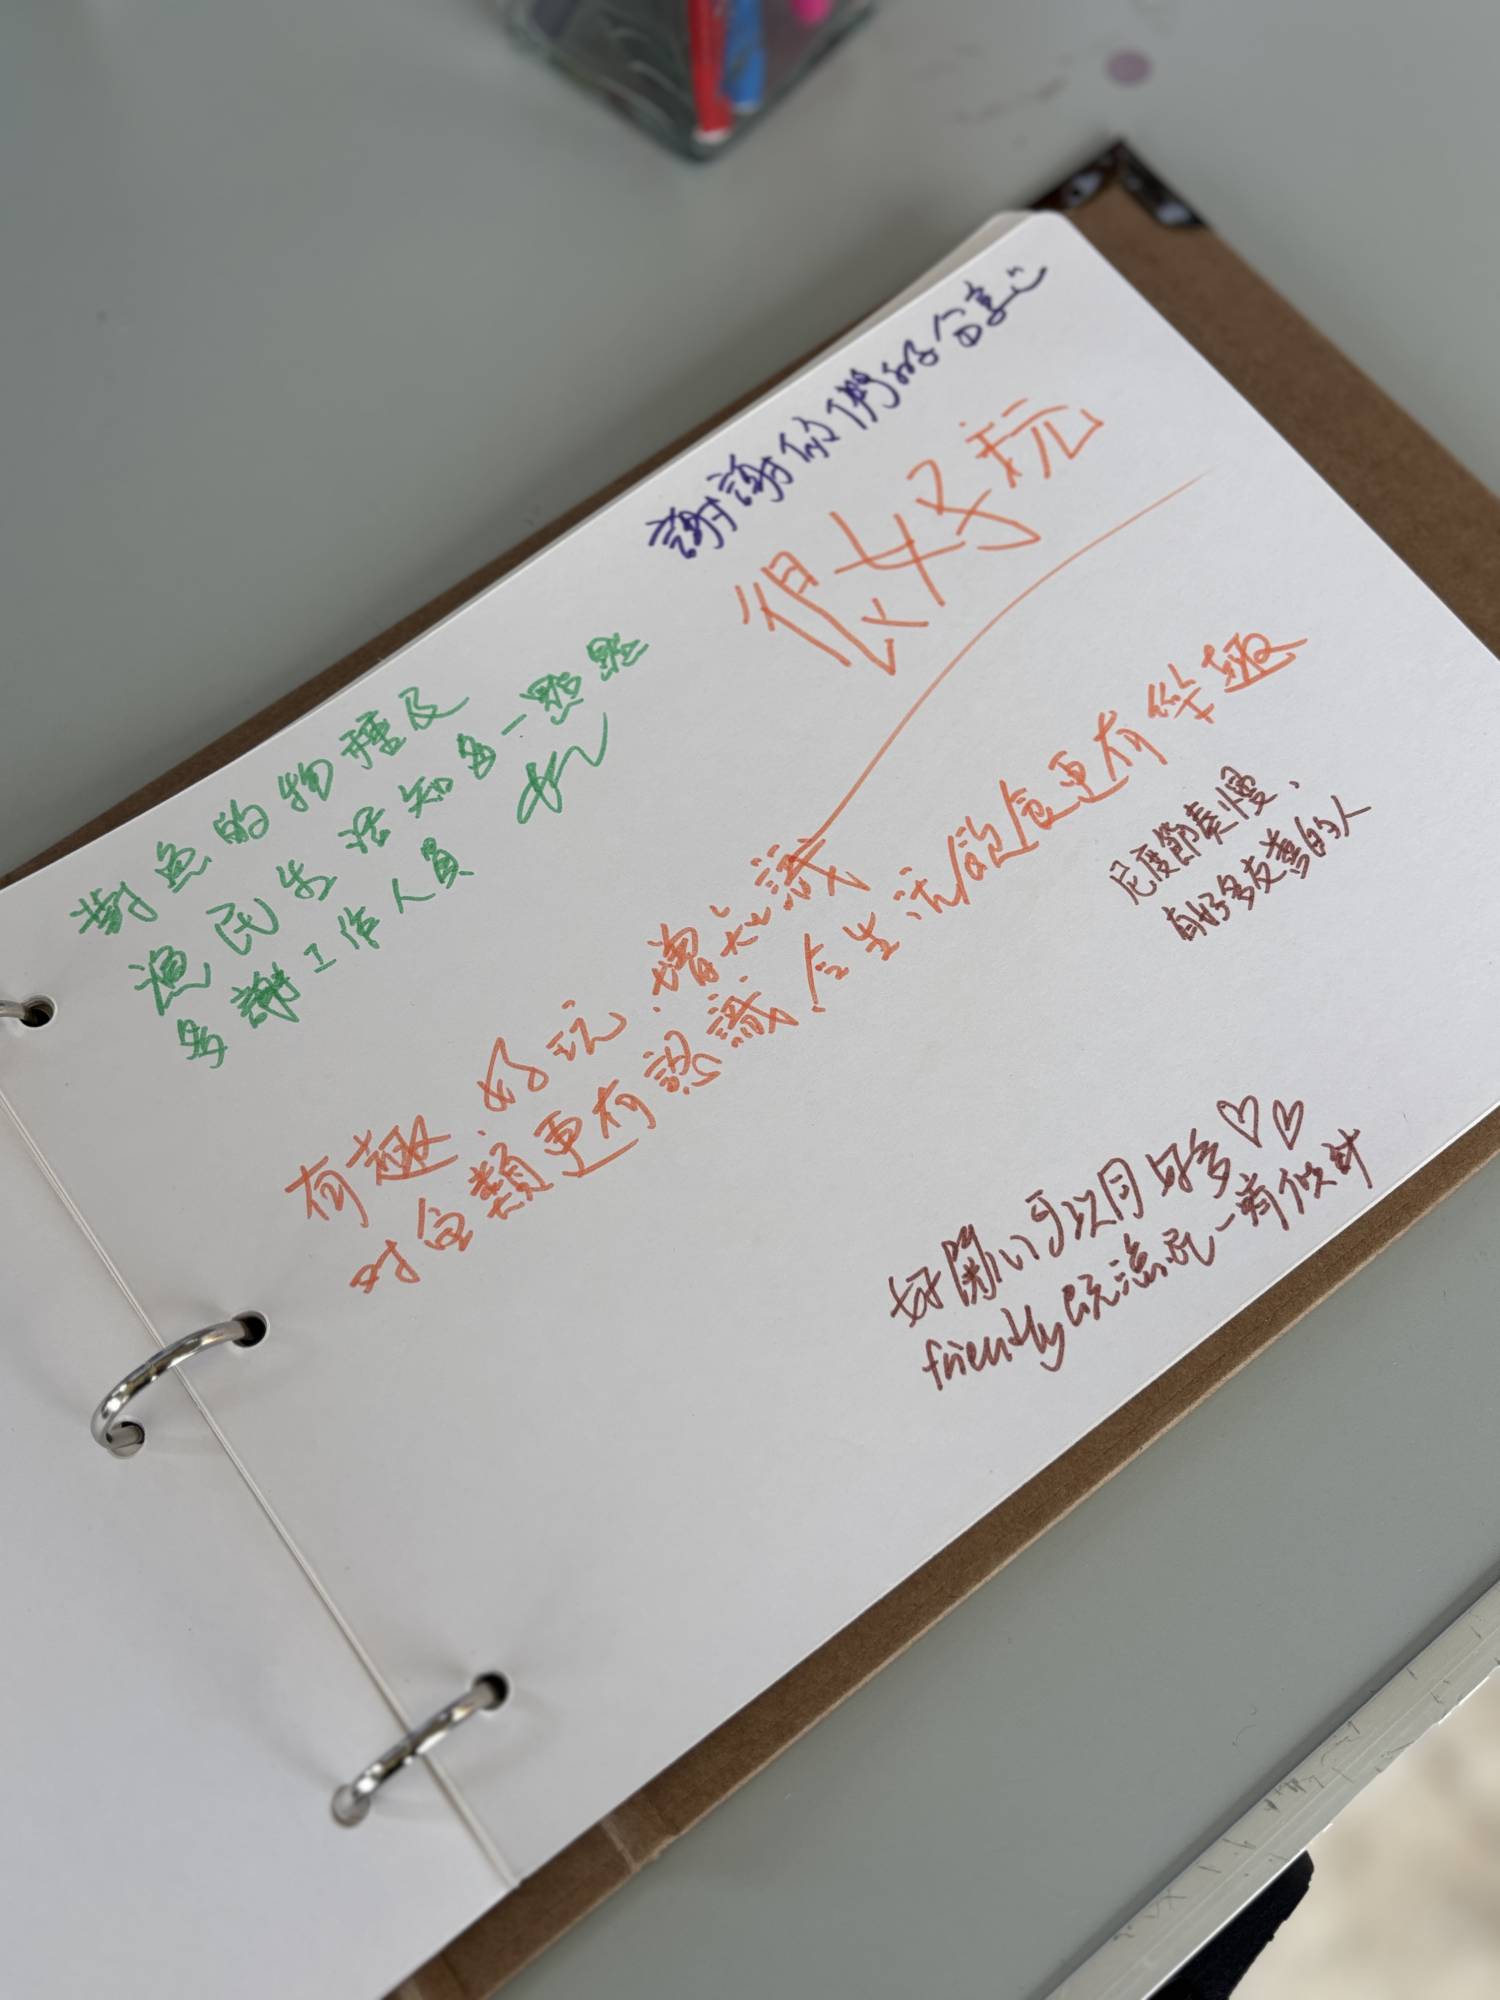 謝謝你們的分享
很好玩
對魚的物種及
漁民生活知多一點點
多謝工作人員
有趣、好玩、增知識
對魚類更有認識,令生活飲食更有樂趣
尼度節奏慢、
有好多友善的人
好開心可以同好多♡♡
friendly既漁民一齊傾計